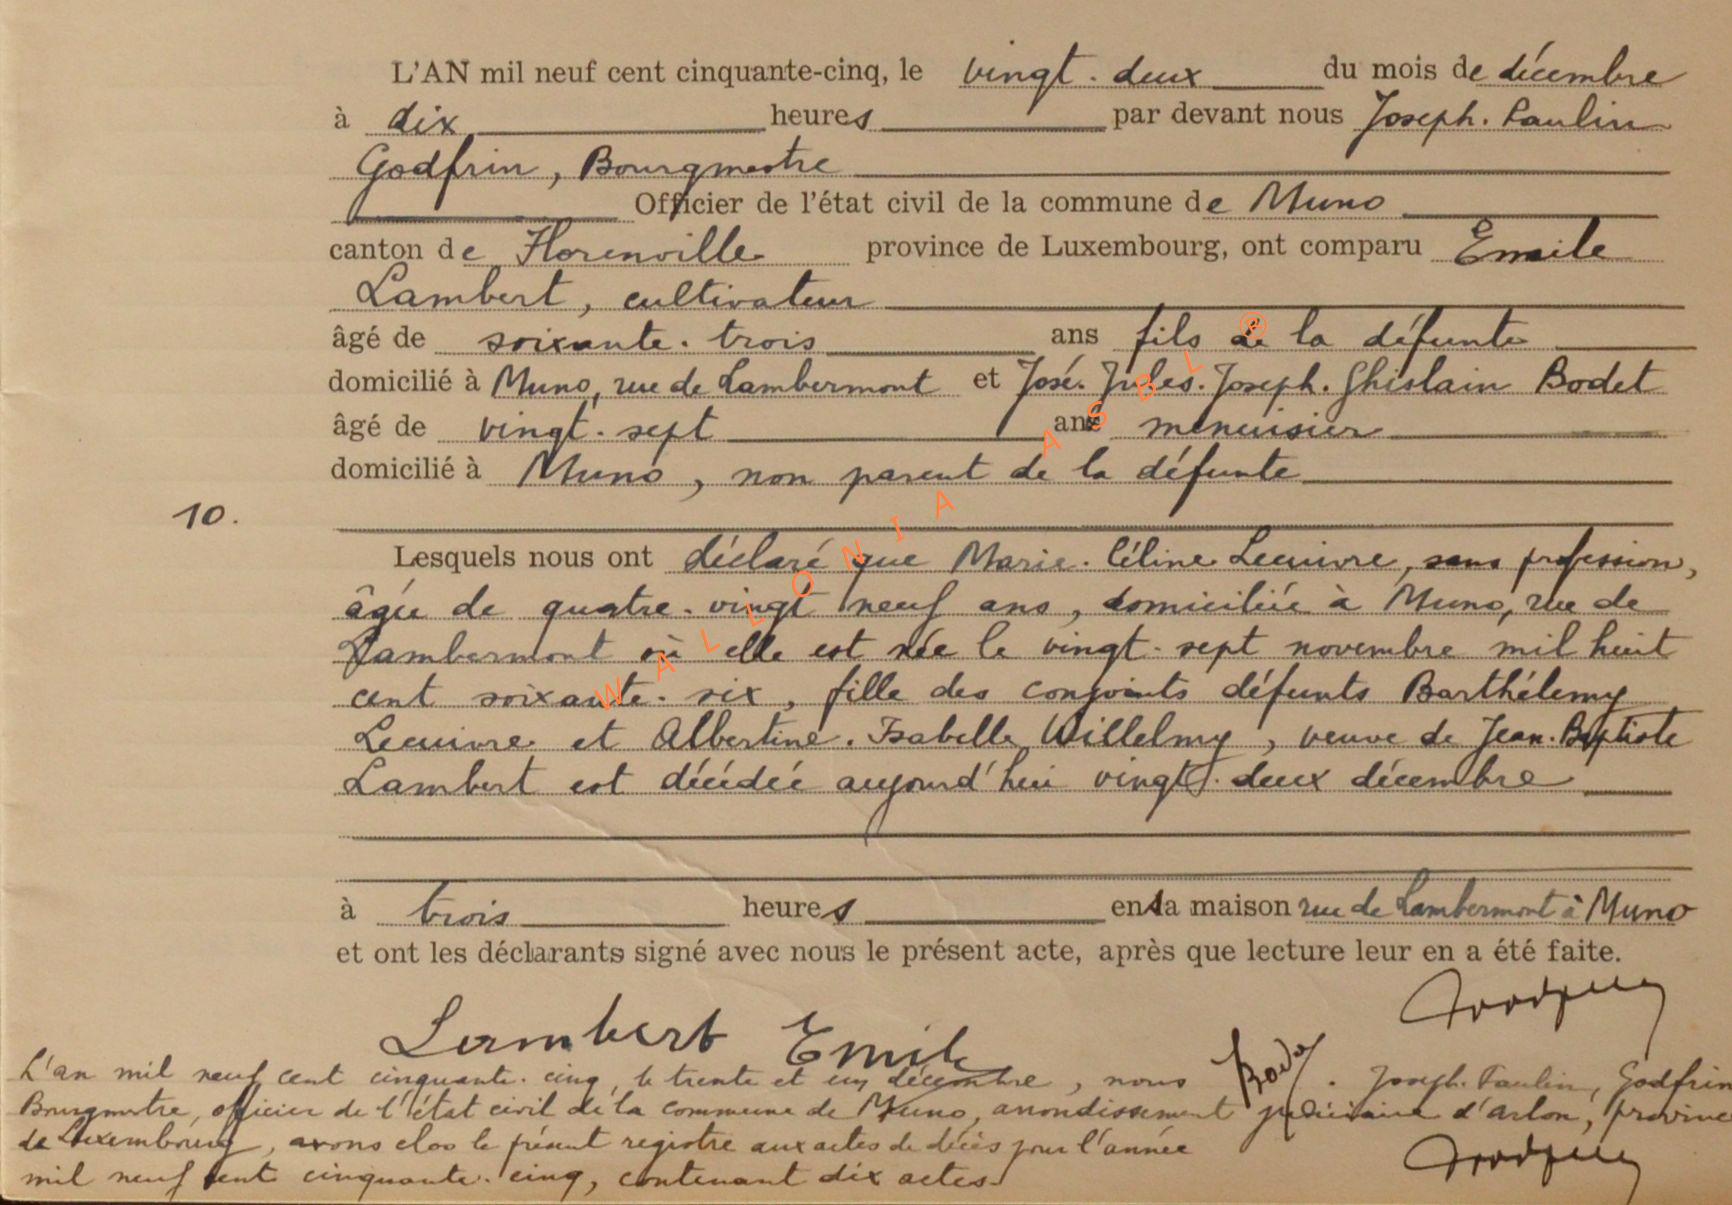 L'AN mil neuf cent cinquante-cinq, le vingt-deux du mois de décembre
à dix heures par devant nous Joseph-Paulin
Godfrin, Bourgmestre
Officier de l'état civil de la commune de Muno
canton de Florenville province de Luxembourg, ont comparu Emile
Lambert, cultivateur
âgé de soixante-trois ans fils de la défunte
domicilié à Muno, rue de Lambermont et José-Jules-Joseph-Ghislain Bodet
âgé de vingt-sept ans menuisier
domicilié à Muno, non parent de la défunte
10.
Lesquels nous ont déclaré que Marie-Céline Lecuivre, sans profession,
âgée de quatre-vingt neuf ans, domiciliée à Muno, rue de
Lambermont où elle est née le vingt-sept novembre mil huit
cent soixante-six, fille des conjoints défunts Barthélemy
Lecuivre et Albertine-Isabelle Willelmy, veuve de Jean-Baptiste
Lambert est décédée aujourd'hui vingt-deux décembre
à trois heures en sa maison rue de Lambermont à Muno
et ont les déclarants signé avec nous le présent acte, après que lecture leur en a été faite.
Lambert Emile
L'an mil neuf cent cinquante-cinq, le trente et un décembre, nous Joseph-Paulin, Godfrin
Bourgmestre, officier de l'état civil de la commune de Muno, arrondissement judiciaire d'Arlon, province
de Luxembourg, avons clos le présent registre aux actes de décès pour l'année
mil neuf cent cinquante-cinq, contenant dix actes.
WALLONIA ASBL ®